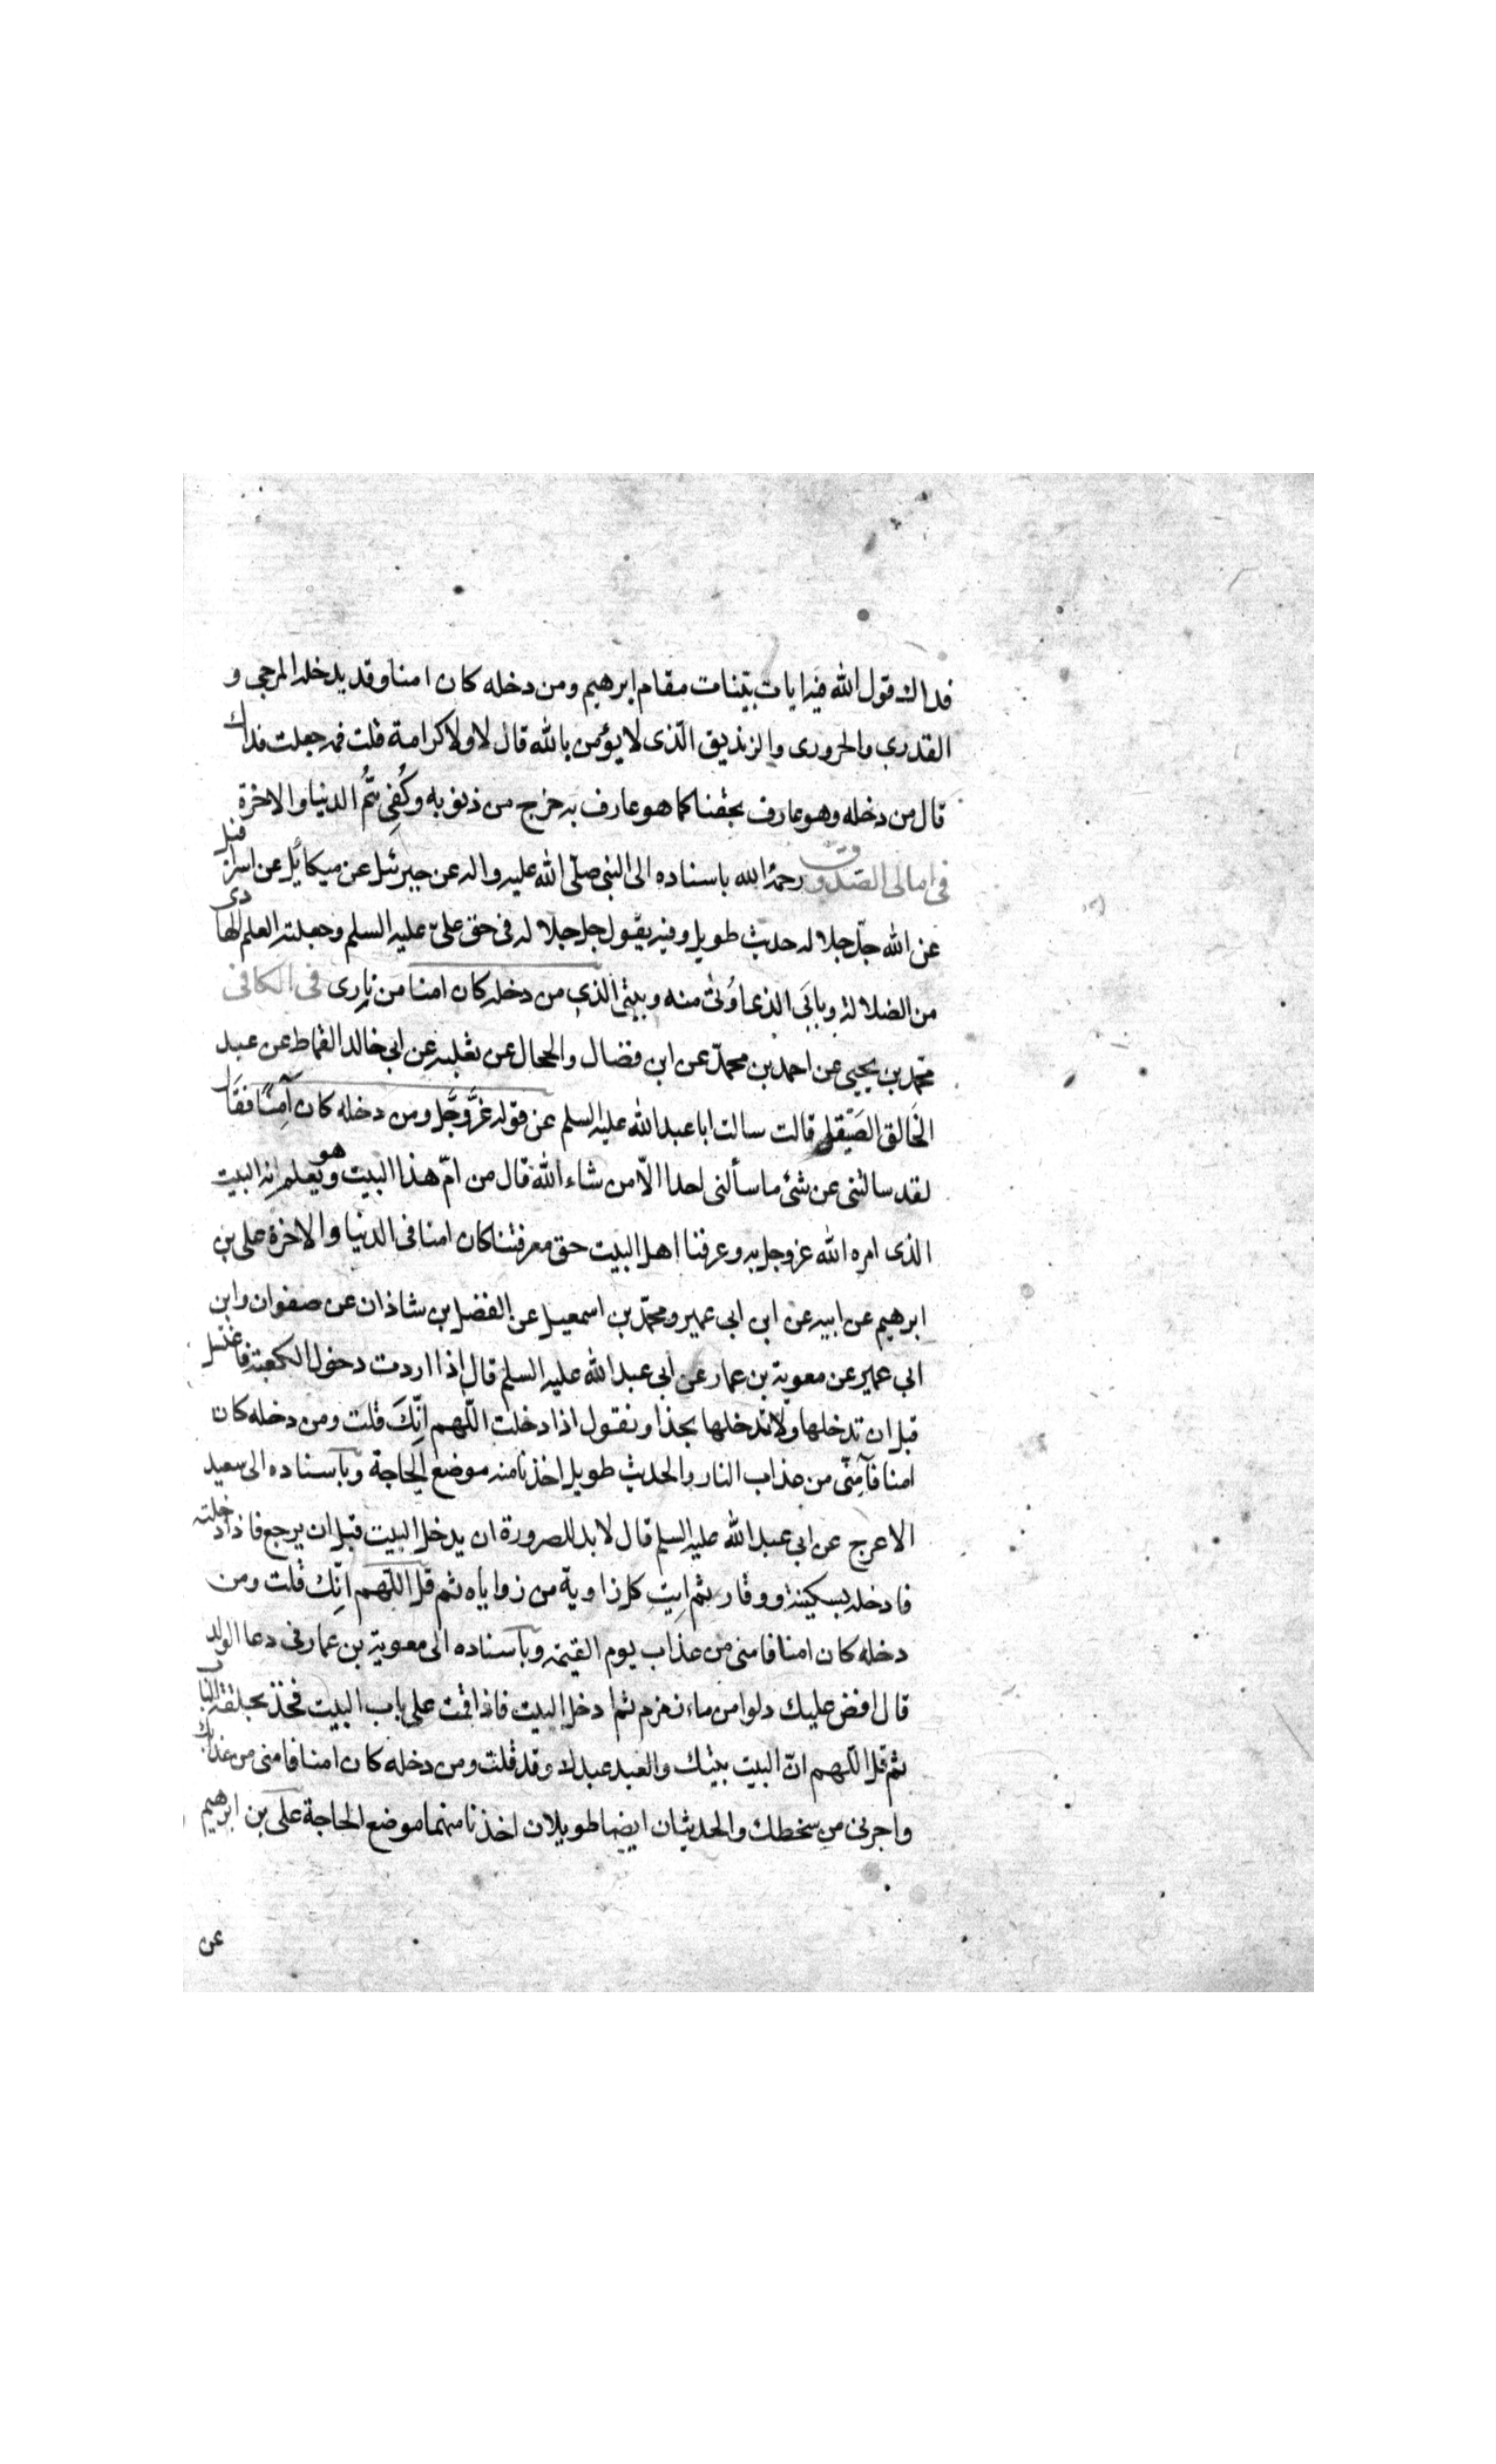 فداك قول الله فيه ايات بينات مقام ابرهيم ومن دخله كان امنا وقد يدخله المرجى و
القدرى والحرورى والزنديق الّذى لا يؤمن بالله قال لا ولا كرامة قلت فمه جعلت فداك
قال من دخله وهو عارف بحقنا كما هو عارف به خرج من ذنوبه وكُفِى همُّ الدنيا والاخرة
فى امالى الصّدوق رحمة الله باسناده الى النبى صلّى الله عليه واله عن جبرئيل عن ميكائيل عن اسرافيل
عن الله جلّ جلاله حديث طويل وفيه يقول جل جلاله فى حق علىّ عليه السلم وجعلته العلم الهادى
من الضلالة وبابَى الذى اُوتى منه وبيتى الذى من دخله كان امنا من نارى فى الكافى
محمّد بن يحيى عن احمد بن محمّد عن ابن فضال والحجال عن ثعلبه عن ابى خالد القماط عن عبد
الخالق الصَيّقل قالت سالت ابا عبد الله عليه السلم عن قوله عَزَّوجَّل ومن دخله كان آمِنًا فقَال
لقد سالتنى عن شئ ما سألنى احدا الّا من شاء الله قال من امّ هذا البيت وهو يعلم انه البيت
الذى امره الله عز وجل به وعرفنا اهل البيت حق معرفتنا كان امنا فى الدنيا والاخرة على بن
ابرهيم عن ابيه عن ابن ابى عمير ومحمّد بن اسمعيل عن الفضل بن شاذان عن صفوان وابن
ابى عمير عن معوية بن عمار عن ابى عبد الله عليه السلم قال اذا اردت دخول الكعبة فاغتسل
قبل ان تدخلها ولا تدخلها بحذا وتقول اذا دخلت اللّهم انِّكَ قلت ومن دخله كان
امنا فآمِنّى من عذاب النار والحديث طويل اخذنا منه موضع الحاجة وباسناده الى سعيد
الاعرج عن ابى عبد الله عليه السلم قال لا بد للصرورة ان يدخل البيت قبل ان يرجع فاذا دخلته
فادخله بسكينة ووقار ثم ايتِ كل زاوية من زواياه ثم قل اللّهم انِّك قلت ومن
دخله كان امنا فامنى من عذاب يوم القيمة وباسناده الى معوية بن عمار فى دعا الولد
قال افض عليك دلوا من ماء زمزم ثم ادخل البيت فاذا قمت على باب البيت فخذ بحلقة الباب
ثم قل اللّهم انّ البيت بيتك والعبد عبدك وقد قلت ومن دخله كان امنا فامنى من عذابك
واجرنى من سخطك والحديثان ايضا طويلان اخذنا منهما موضع الحاجة على بن ابرهيم
عن